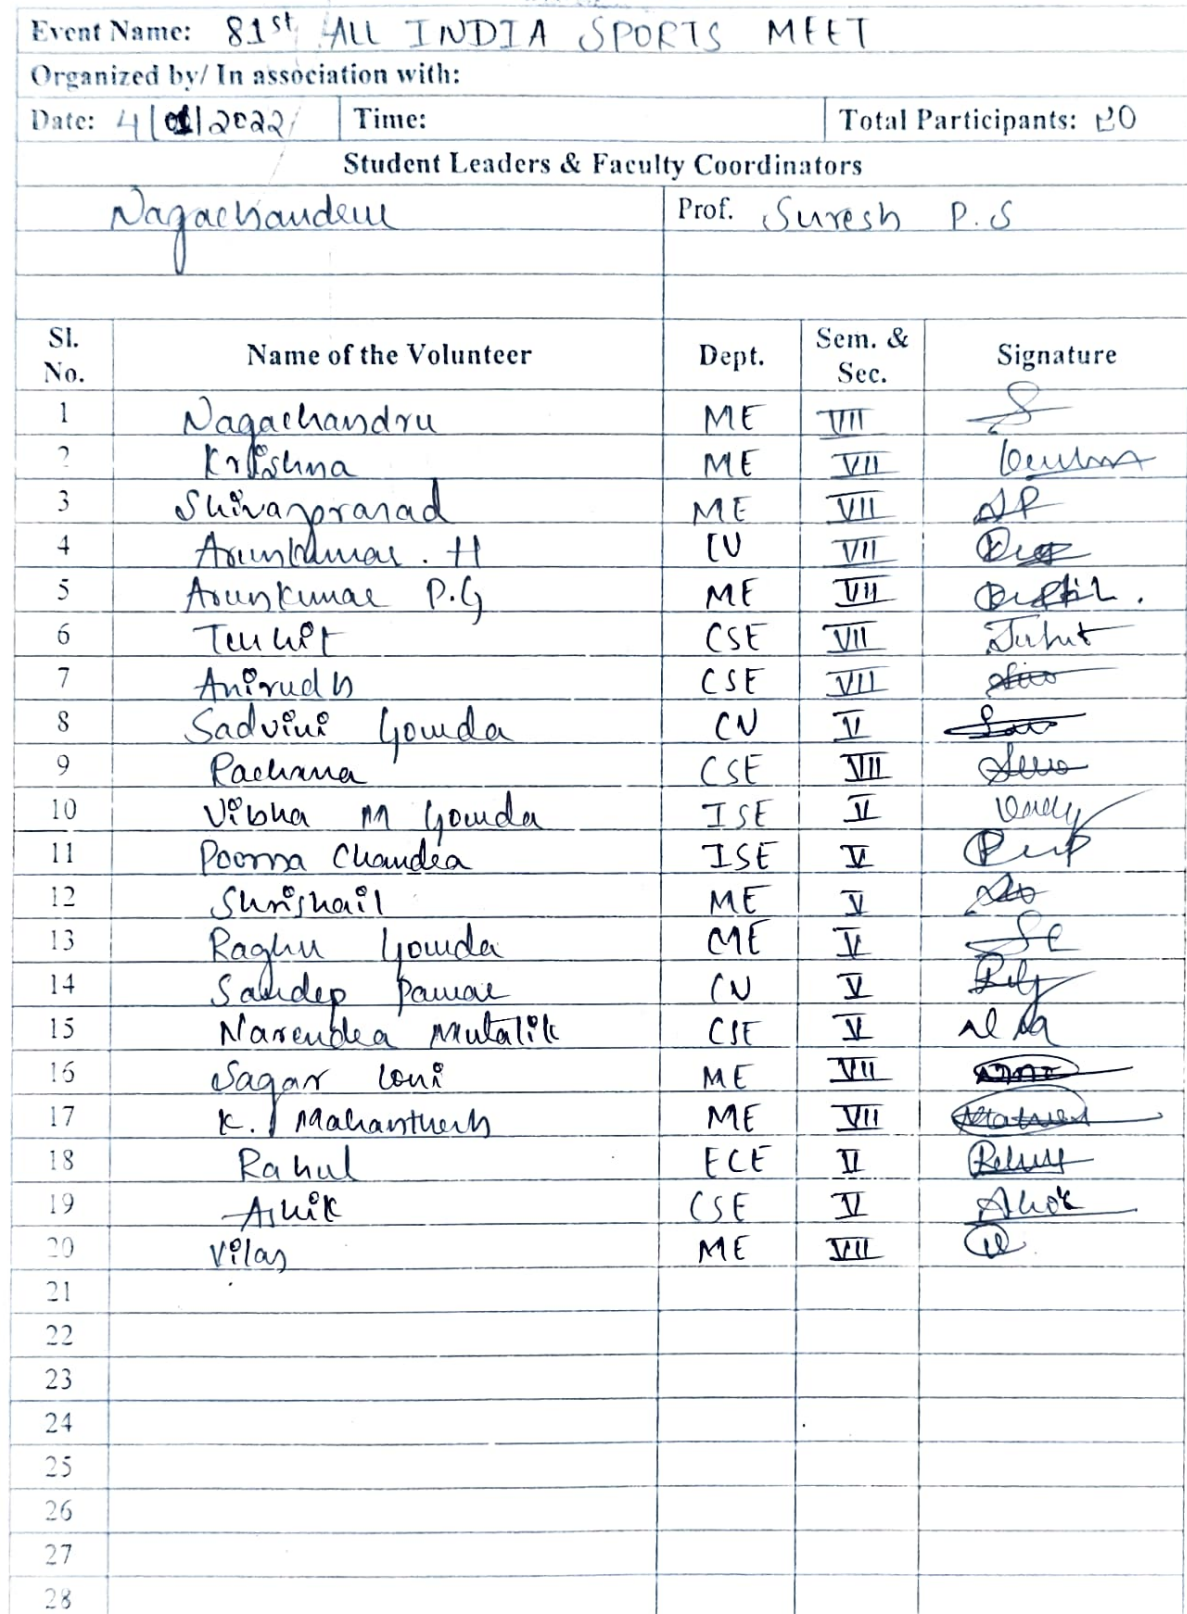 Event Name: 81st ALL INDIA SPORTS MEET
Organized by/ In association with:
Date: 4/01/2022 Time: Total Participants: 20
Student Leaders & Faculty Coordinators
Nagachandru Prof. Suresh P.S
Sl. No. Name of the Volunteer Dept. Sem. & Sec. Signature
1 Nagachandru ME VII
2 Krishna ME VII
3 Shivaprasad ME VII SP
4 Arunkumar . H CV VII
5 Arunkumar P.G ME VII
6 CSE VII
7 Anirudh CSE VII
8 Sadvini Gowda CV V
9 Rachana CSE VII
10 Vibha M Gowda ISE V
11 Poorna Chandra ISE V
12 Shrishail ME V
13 Raghu Gowda ME V
14 Sandep Pawar CV V
15 Narendra Mutalik CSE V
16 Sagar Loni ME VII
17 K. Mahanthesh ME VII
18 Rahul ECE V
19 Ashik CSE V
20 Vilas ME VII
21
22
23
24
25
26
27
28